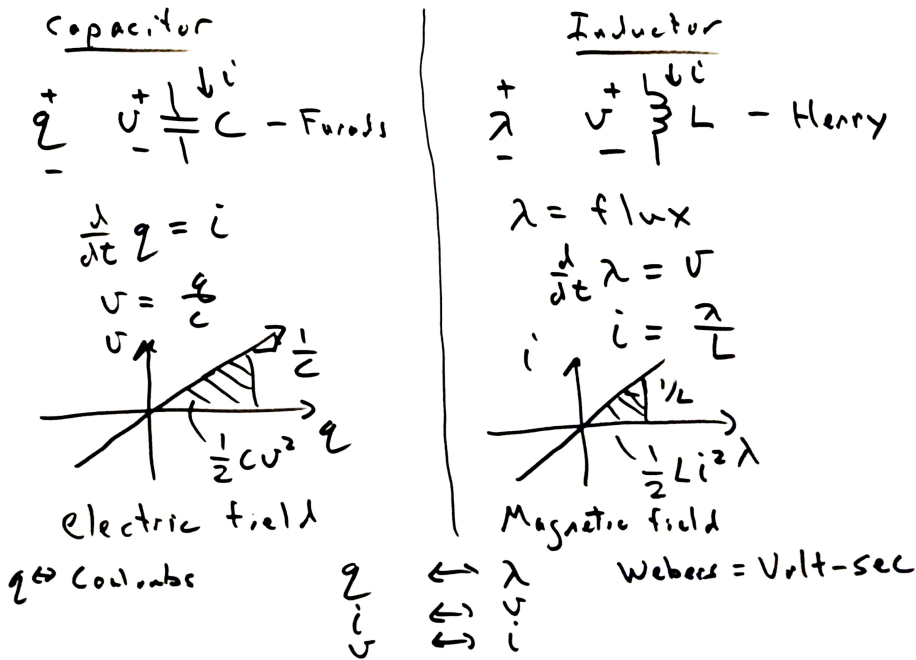 Capacitor
+ q -
v + - i C - Farads
d/dt q = i
v = q/c
v
1/C
q
1/2 Cv²
electric field
q ↔ Coulombs
Inductor
+ λ -
v + - i L - Henry
λ = flux
d/dt λ = v
i = λ/L
i
1/L
λ
1/2 Li²
Magnetic field
Webers = Volt-sec
q ↔ λ
i ↔ v
v ↔ i